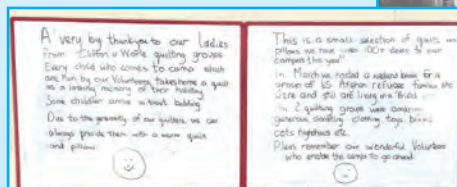 A very big thankyou to our Ladies
From & World quilting groups.
Every child who comes to camp which
are Run by our Volunteers, takes home a quilt
as a lasting memory of their holiday
Some children arrive without bedding
Due to the generosity of our quilters, we can
always provide them with a warm quilt
and pillow.
This is a small selection of quilts and
pillows we have over 100+ to our
campers this year
In March we hosted a weekend break for a
group of 65 Afghan refugee families who
were and still are living in a hotel
In 2 quilting groups were
generous donating clothing toys books
cots etc.
Please remember our wonderful Volunteers
who enable the camps to go ahead